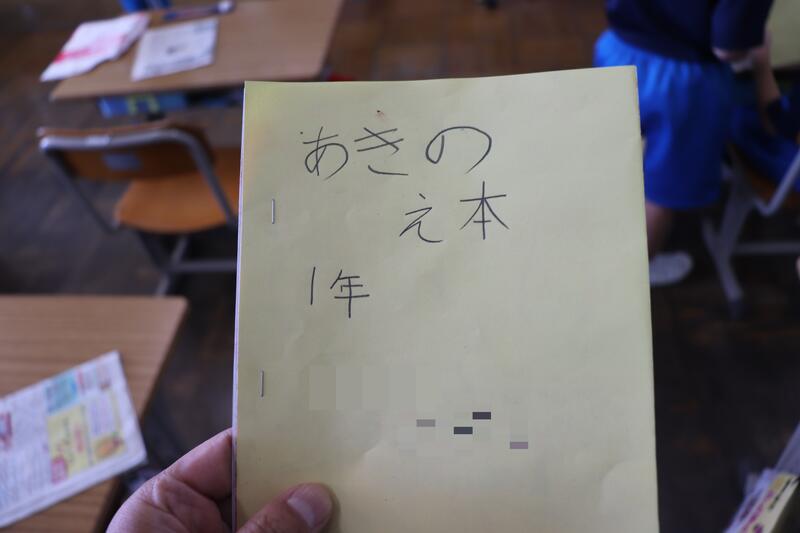 あきの
え本
1年